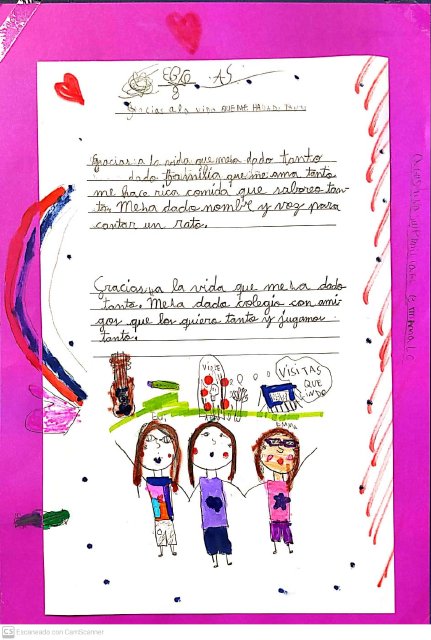 Gracias a la vida QUE ME HA DADO TANTO
Gracias a la vida que meha dado tanto
dado familia que me ama tanto
me hace rica comida que saboreo tan-
to. Meha dado nombre y voz para
cantar un rato.
Gracias a la vida que meha dado
tanto. Meha dado colegio con ami-
gos que los quiero tanto y jugamos
tanto.
VISITAS
QUE
LINDO
EMMA
CS Escaneado con CamScanner